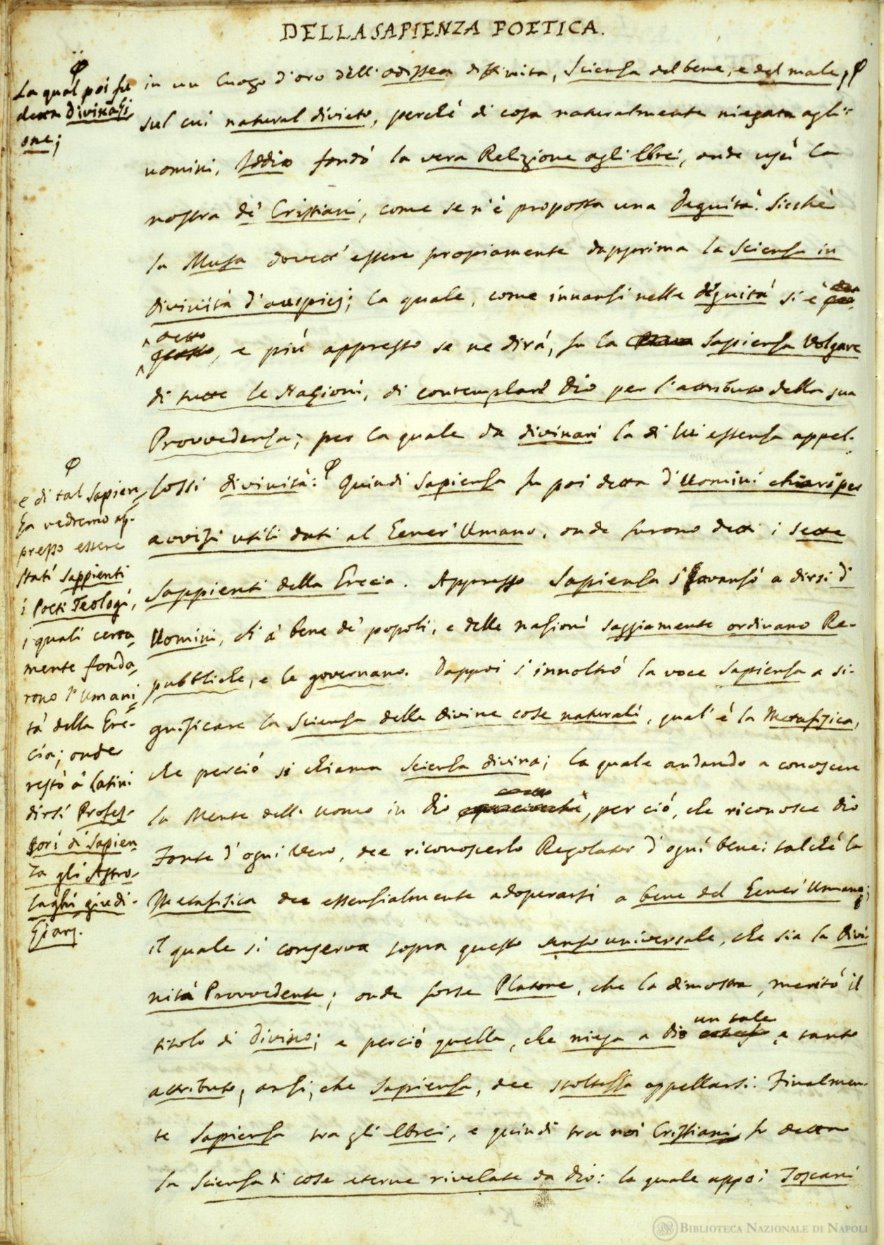 DELLA SAPIENZA POETICA.
La qual poi fu
detta Divinazi-
one;
in un luogo d'oro dell'Odissea diffinita, Scienza del bene, e del male,
sul cui natural divieto, perchè di cosa naturalmente niegata agli
uomini, Iddio fondò la vera Religione agli Ebrei, onde uscì la
nostra de' Cristiani, come se n'è proposta una Degnità. Sicchè
la Musa dovett' essere propiamente dapprima la Scienza in
divinità d'auspicj; la quale, come innanzi nelle degnità si è
detto, e più appresso se ne dirà, fu la Sapienza Volgare
di tutte le Nazioni, di contemplare Dio per l'attributo della sua
Provvedenza; per la quale da divinari la di lui essenza appel-
lossi divinità: Quindi Sapienza fu poi detta d'Uomini chiari per
avvisi utili dati al Gener' Umano, onde furono detti i sette
Sappienti della Grecia. Appresso Sapienza s'avanzò a dirsi d'
Uomini, ch' a bene de' popoli, e delle nazioni saggiamente ordinano Re-
pubbliche, e le governano. Dappoi s'innoltrò la voce Sapienza a si-
gnificare la Scienza delle divine cose naturali, qual'è la Metafisica,
che perciò si chiama Scienza divina; la quale andando a conoscere
la Mente dell' Uomo in Dio, per ciò, che riconosce Dio
Fonte d'ogni Vero, dee riconoscerlo Regolator d'ogni bene: talchè la
Metafisica dee essenzialmente adoperarsi a bene del Gener' Umano;
il quale si conserva sopra questo senso universale, che sia la Divi
nità Provvedente; onde forse Platone, che la dimostra, meritò il
titolo di divino; e perciò quella, che niega a Dio un tale, e tanto
attributo, anzi, che Sapienza, dee stoltezza appellarsi. Finalmen-
te Sapienza tra gli Ebrei, e quindi tra noi Cristiani fu detta
la Scienza di cose eterne rivelate da Dio: la quale appo i Toscani
e di tal Sapien-
za vedremo ap-
presso essere
stati Sappienti
i Poeti Teologi,
i quali certa-
mente fonda-
rono l'Umani
tà della Gre-
cia; onde
restò a' Latini
dirsi Profes-
sori di Sapien
za gli Astro-
laghi giudi-
ziarj.
BIBLIOTECA NAZIONALE DI NAPOLI